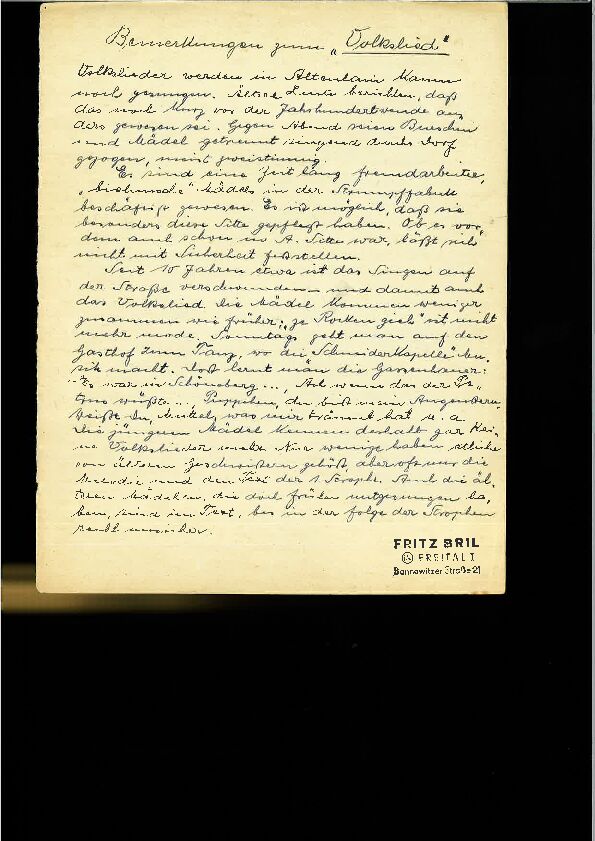 Bemerkungen zum „Volkslied"
Volkslieder werden in Altenhain kaum
noch gesungen. Ältere Leute berichten, daß
das noch kurz vor der Jahrhundertwende an-
ders gewesen sei. Gegen Abend seien Burschen
und Mädel getrennt singend durchs Dorf
gezogen, meist zweistimmig.
Es sind eine Zeit lang fremdarbeiter,
„böhmsche" Mädels in der Strumpffabrik
beschäftigt gewesen. Es ist möglich, daß sie
besonders diese Sitte gepflegt haben. Ob es vor-
dem auch schon in A. Sitte war, läßt sich
nicht mit Sicherheit feststellen.
Seit 10 Jahren etwa ist das Singen auf
der Straße verschwunden und damit auch
das Volkslied. Die Mädel kommen weniger
zusammen wie früher; „ze Rocken gieh" ist nicht
mehr mode. Sonntags geht man auf den
Gasthof zum Tanz, wo die Schneiderkapelle Mu-
sik macht. Dort lernt man die Gassenhauer:
Es war in Schöneberg..., Ach wenn das der Pe-
trus wüßte..., Puppchen, du bist mein Augenstern,
Weißt du, Mutterl, was mir träumt hat u. a
Die jüngern Mädel kennen deshalb gar kei-
ne Volkslieder mehr. Nur wenige haben etliche
von älteren Geschwistern gehört, aber oft nur die
Melodie und den Text der 1. Strophe. Auch die äl-
teren Mädchen, die doch früher mitgesungen ha-
ben, sind im Text, bes. in der folge der Strophen
recht unsicher.
FRITZ BRIL
FREITAL I
Bannewitzer Straße 21